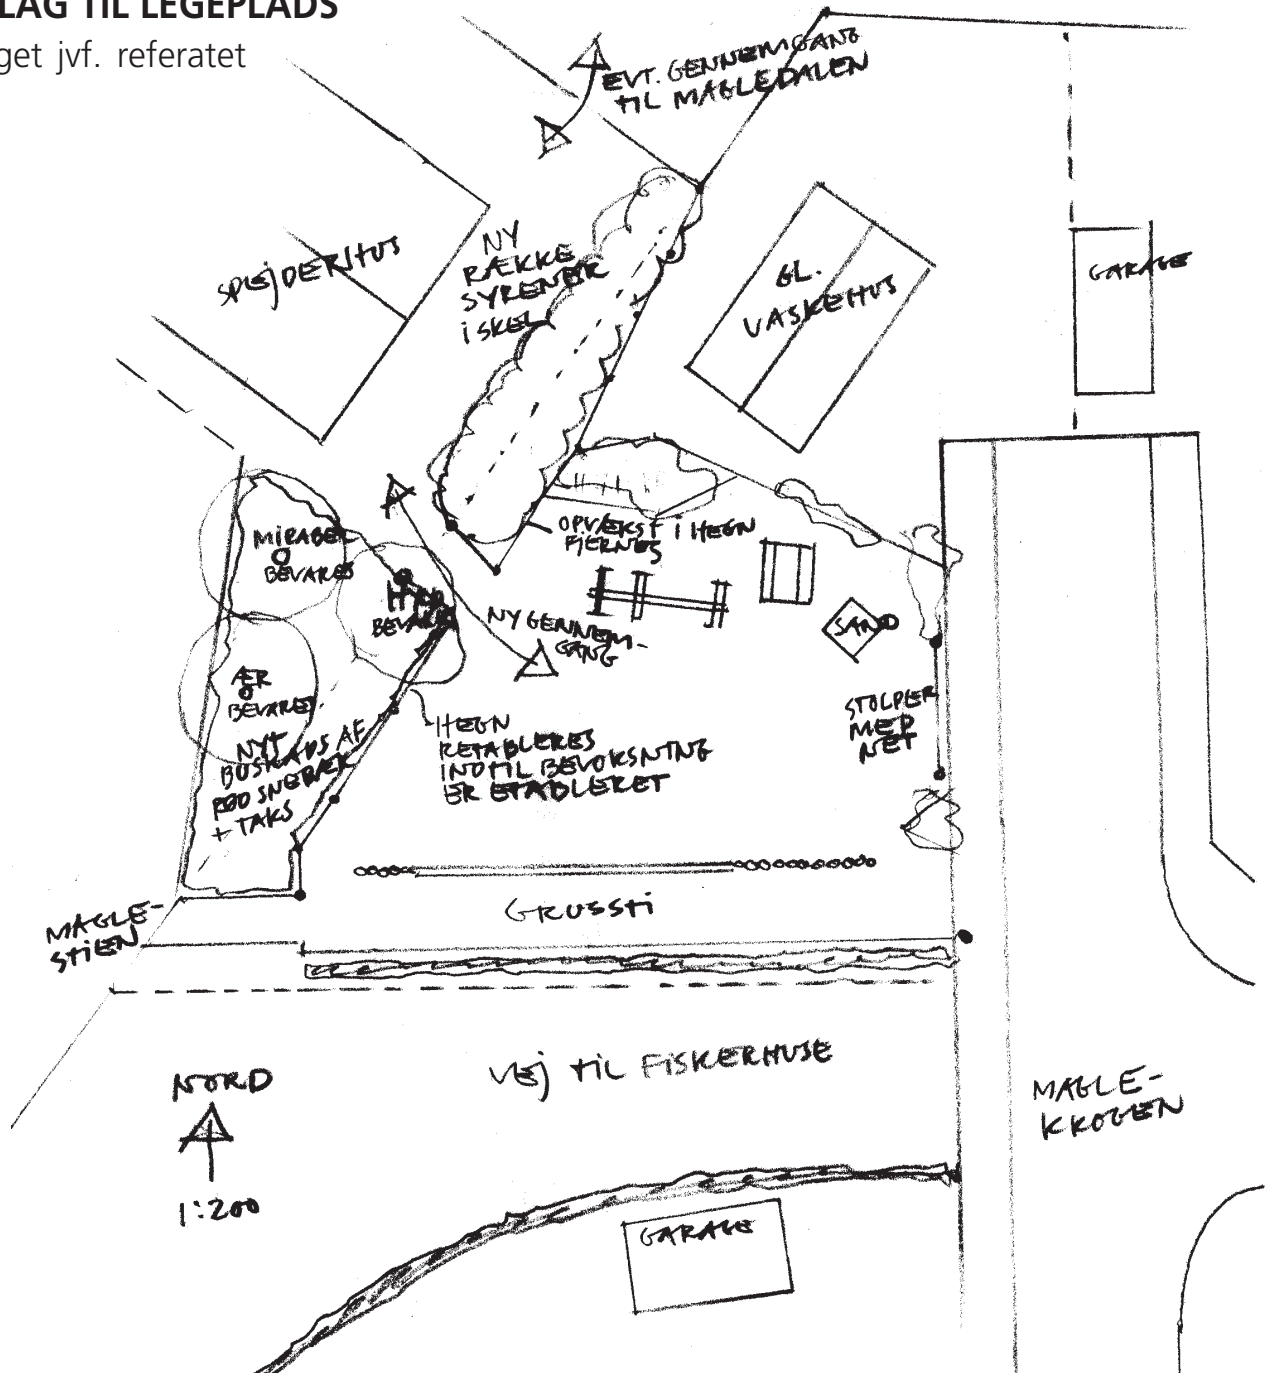 LAG TIL LEGEPLADS
get jvf. referatet
EVT. GENNEMGANG
TIL MAGLEDALEN
SPEJDERHUS
NY
RÆKKE
SYRENER
I SKEL
GL.
VASKEHUS
GARAGE
MIRABEL
BEVARES
BEVARES
OPVÆKST I HEGN
FJERNES
NY GENNEM-
GANG
SAND
ÆR
BEVARES
STOLPER
MED
NET
NYT
BUSKADS AF
RØD SNEBÆR
+ TAKS
HEGN
RETABLERES
INDTIL BEVOKSNING
ER ETABLERET
GRUSSTI
MAGLE-
STIEN
VEJ TIL FISKERHUSE
NORD
1:200
MAGLE-
KROGEN
GARAGE